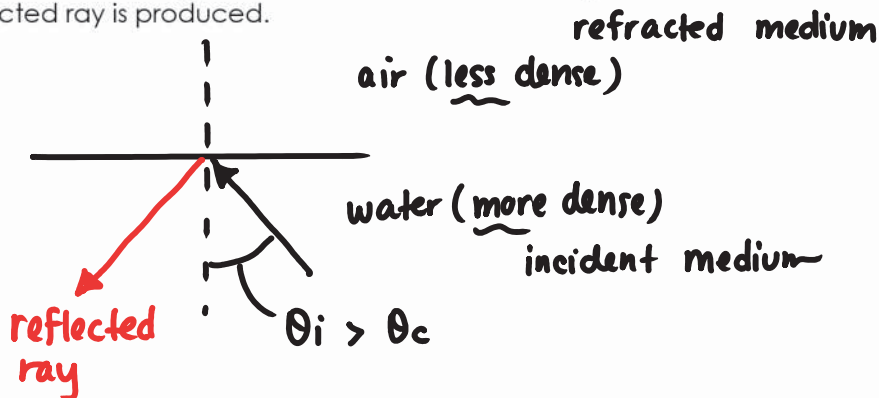 cted ray is produced.
refracted medium
air (less dense)
water (more dense)
incident medium
reflected
ray
θi > θc